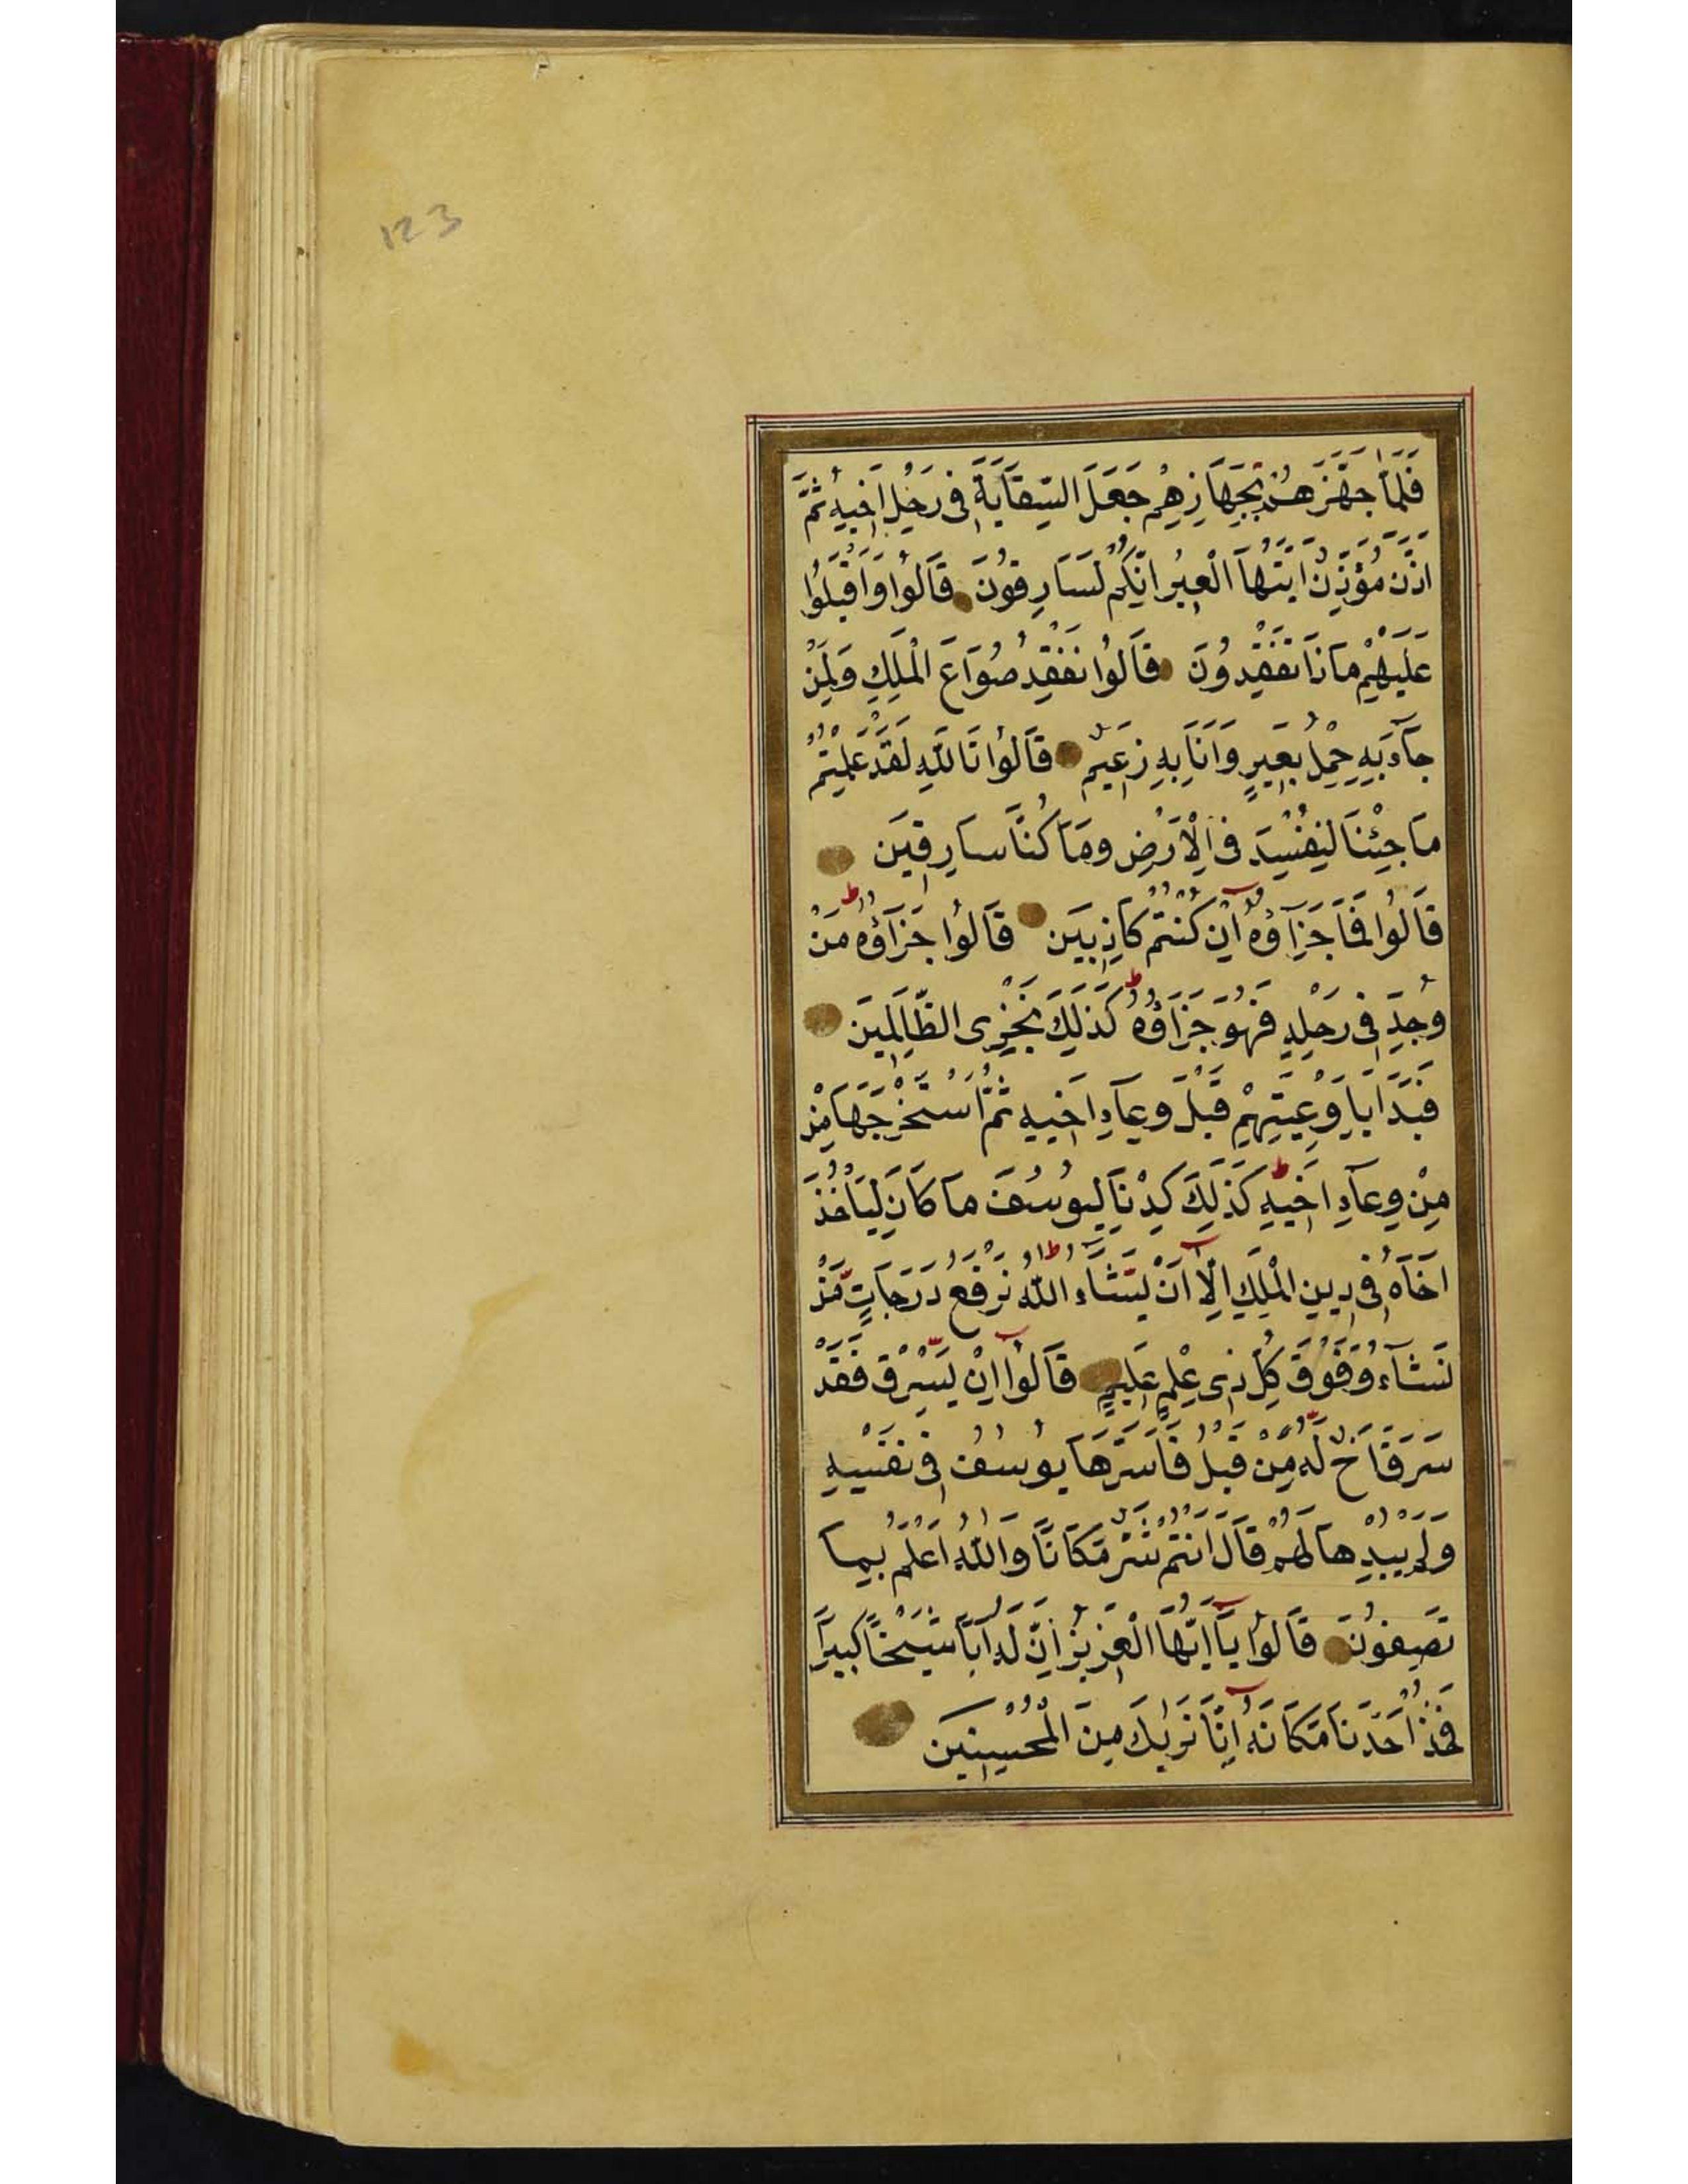 123
فَلَمَّا جَهَّزَهُمْ بِجَهَازِهِمْ جَعَلَ السِّقَايَةَ فِى رَحْلِ اَخِيهِ ثُمَّ
اَذَّنَ مُؤَذِّنٌ اَيَّتُهَا الْعِيرُ اِنَّكُمْ لَسَارِقُونَ قَالُوا وَاَقْبَلُوا
عَلَيْهِمْ مَاذَا تَفْقِدُونَ قَالُوا نَفْقِدُ صُوَاعَ الْمَلِكِ وَلِمَنْ
جَآءَ بِهِ حِمْلُ بَعِيرٍ وَاَنَا بِهِ زَعِيمٌ قَالُوا تَاللّٰهِ لَقَدْ عَلِمْتُمْ
مَا جِئْنَا لِنُفْسِدَ فِى الْاَرْضِ وَمَا كُنَّا سَارِقِينَ
قَالُوا فَمَا جَزَآؤُهُ اِنْ كُنْتُمْ كَاذِبِينَ قَالُوا جَزَآؤُهُ مَنْ
وُجِدَ فِى رَحْلِهِ فَهُوَ جَزَآؤُهُ ط كَذٰلِكَ نَجْزِى الظَّالِمِينَ
فَبَدَاَ بِاَوْعِيَتِهِمْ قَبْلَ وِعَآءِ اَخِيهِ ثُمَّ اسْتَخْرَجَهَا مِنْ
مِنْ وِعَآءِ اَخِيهِ ط كَذٰلِكَ كِدْنَا لِيُوسُفَ مَا كَانَ لِيَاْخُذَ
اَخَاهُ فِى دِينِ الْمَلِكِ اِلَّآ اَنْ يَشَآءَ اللّٰهُ ط نَرْفَعُ دَرَجَاتٍ مَّنْ
نَشَآءُ وَفَوْقَ كُلِّ ذِى عِلْمٍ عَلِيمٍ قَالُوا اِنْ يَسْرِقْ فَقَدْ
سَرَقَ اَخٌ لَّهُ مِنْ قَبْلُ فَاَسَرَّهَا يُوسُفُ فِى نَفْسِهِ
وَلَمْ يُبْدِهَا لَهُمْ قَالَ اَنْتُمْ شَرٌّ مَّكَانًا وَاللّٰهُ اَعْلَمُ بِمَا
تَصِفُونَ قَالُوا يَآ اَيُّهَا الْعَزِيزُ اِنَّ لَهُ اَبًا شَيْخًا كَبِيرًا
فَخُذْ اَحَدَنَا مَكَانَهُ اِنَّا نَرٰيكَ مِنَ الْمُحْسِنِينَ